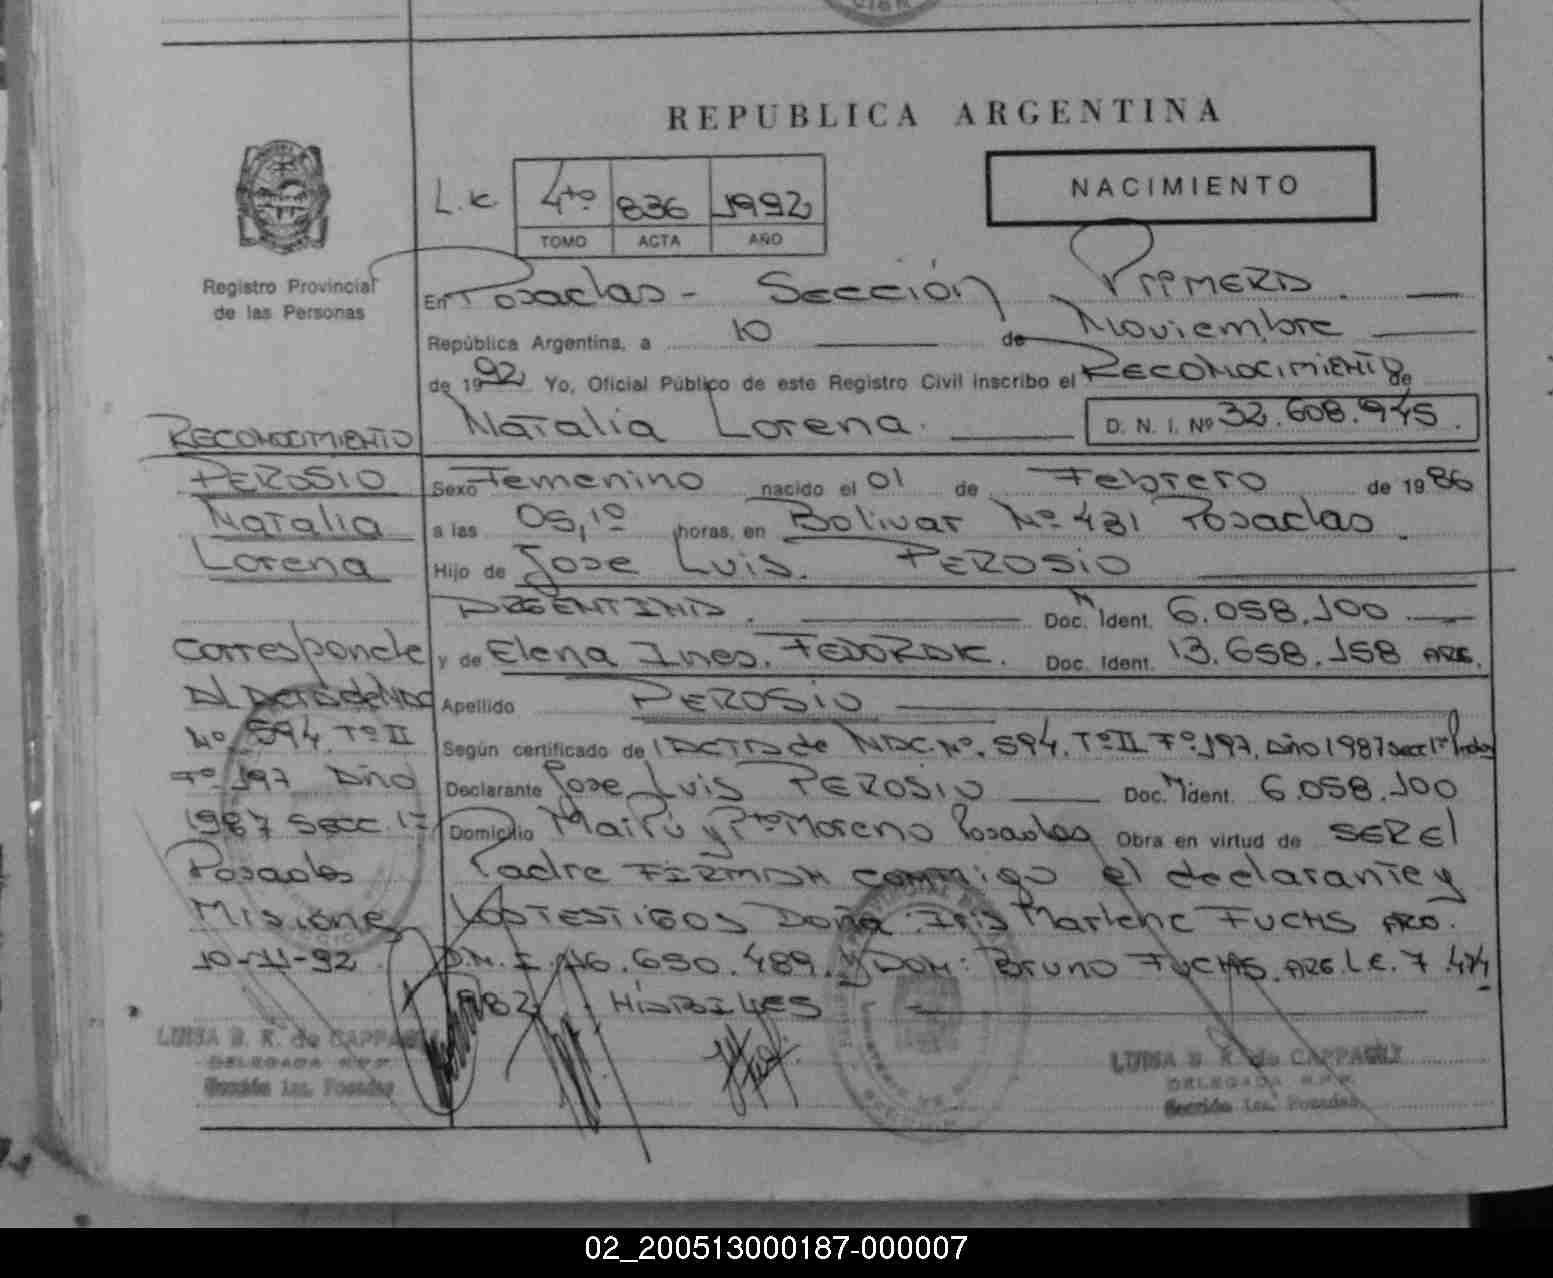 REPUBLICA ARGENTINA
NACIMIENTO
L.C. 4to 836 1992
TOMO ACTA AÑO
Registro Provincial
de las Personas
En Posadas - Sección Primera.
República Argentina, a 10 de Noviembre
de 1992 Yo, Oficial Público de este Registro Civil inscribo el RECONOCIMIENTO de
Natalia Lorena. D. N. I. Nº 32.608.945.
Sexo Femenino nacido el 01 de Febrero de 1986
a las 05,10 horas, en Bolivar Nº 481 Posadas.
Hijo de Jose Luis. PEROSIO
ARGENTINA. Doc. M Ident. 6.058.100
y de Elena Ines. FEDORAK. Doc. Ident. 13.658.158 ARG.
Apellido PEROSIO
Según certificado de ACTA de NAC. Nº. 594. Tº II Fº 197. Año 1987 Secc 1º
Declarante Jose Luis PEROSIO Doc. M Ident. 6.058.100
Domicilio Maipú y Pto Moreno Posadas Obra en virtud de SER El
Padre FIRMAN conmigo el declarante y
LOS TESTIGOS Doña: Iris Marlene FUCHS ARG.
D.N.I. 16.650.489. y Don: Bruno FUCHS. ARG. L.E. 7.474
982 HÁBILES
RECONOCIMIENTO
PEROSIO
Natalia
Lorena
Corresponde
Al Acta de NAC
Nº 594. Tº II
Fº 197 Año
1987 Secc. 1º
Posadas
Misiones
10-11-92
LUISA B. K. de CAPPAGLI
DELEGADA R.P.P.
Sección 1ra. Posadas
LUISA B. K. de CAPPAGLI
DELEGADA R.P.P.
Sección 1ra. Posadas
02_200513000187-000007